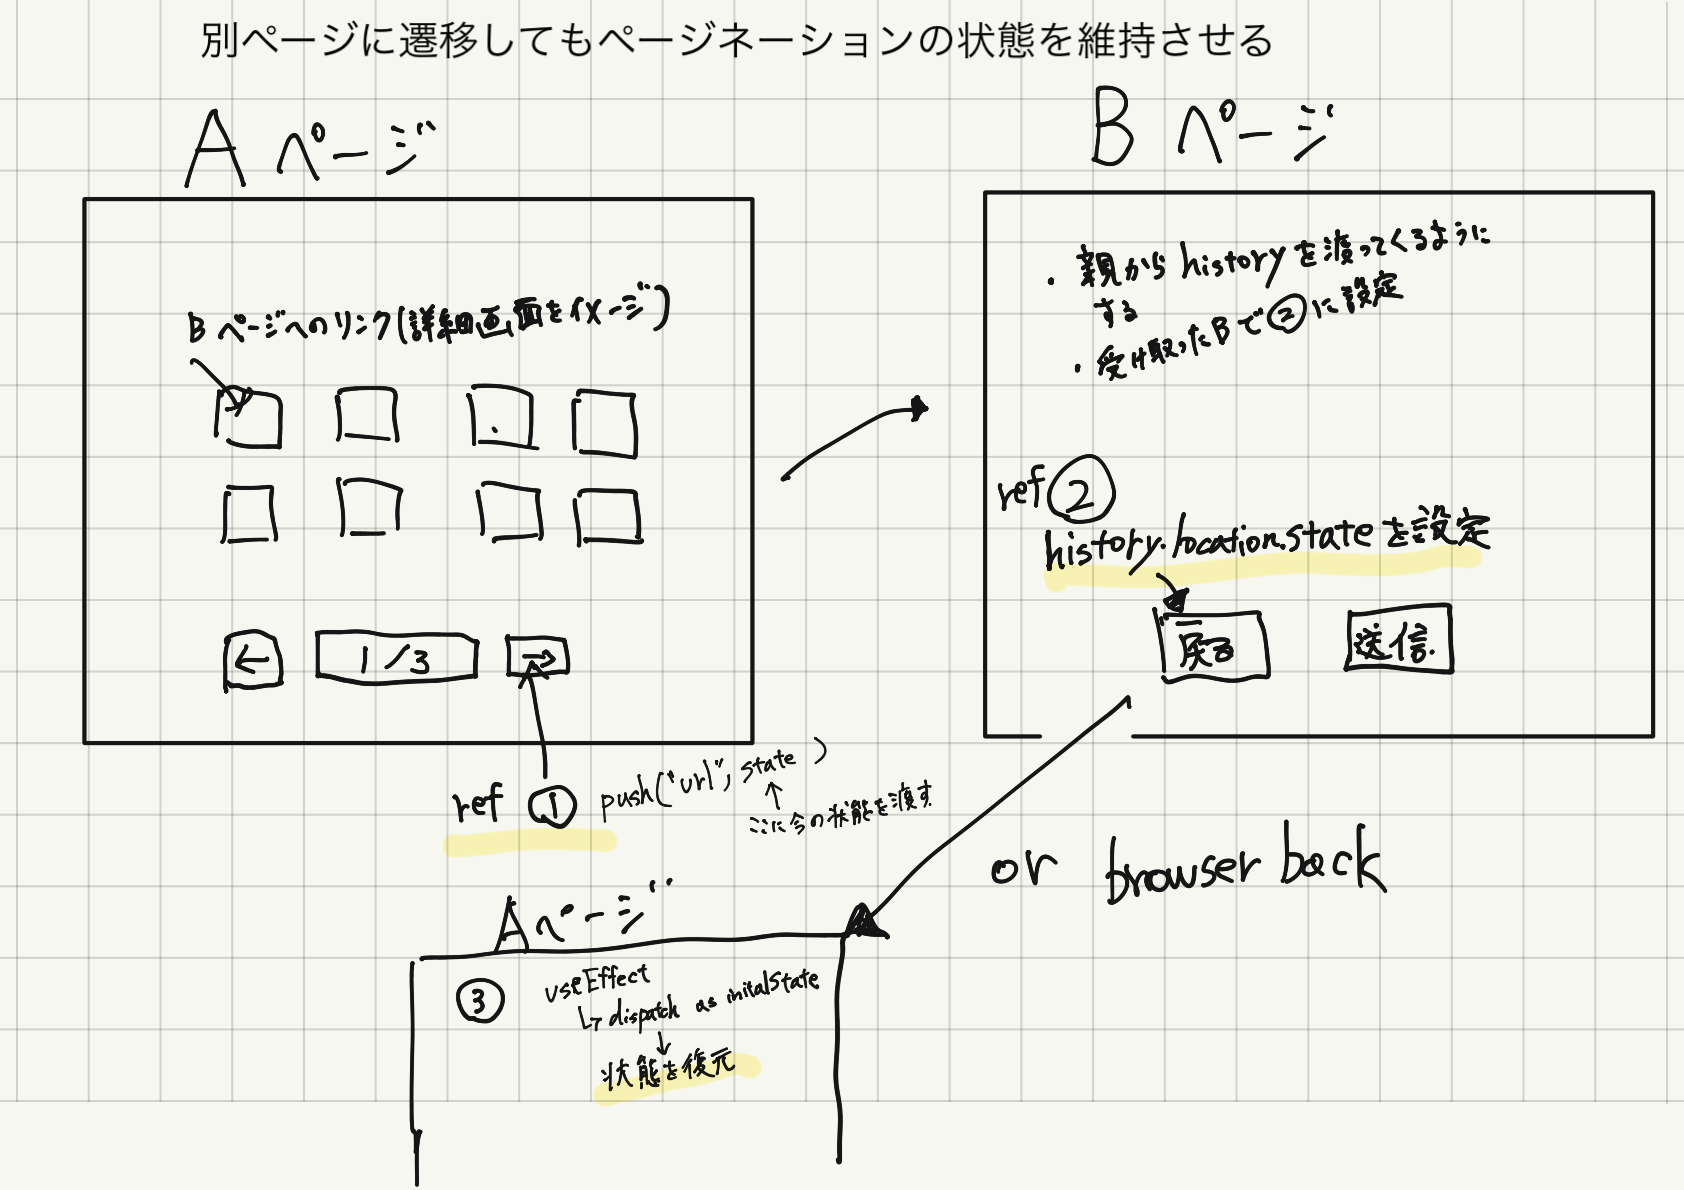 別ページに遷移してもページネーションの状態を維持させる
Aページ
Bページへのリンク(詳細画面をイメージ)
←
1/3
→
ref ① push("url", state)
ここに今の状態を渡す
Bページ
・親からhistoryを渡ってくるように
する
・受け取ったBで②に設定
ref ②
history.location.stateを設定
戻る
送信
or browser back
Aページ
③ useEffect
↳ dispatch as initalState
↓
状態を復元